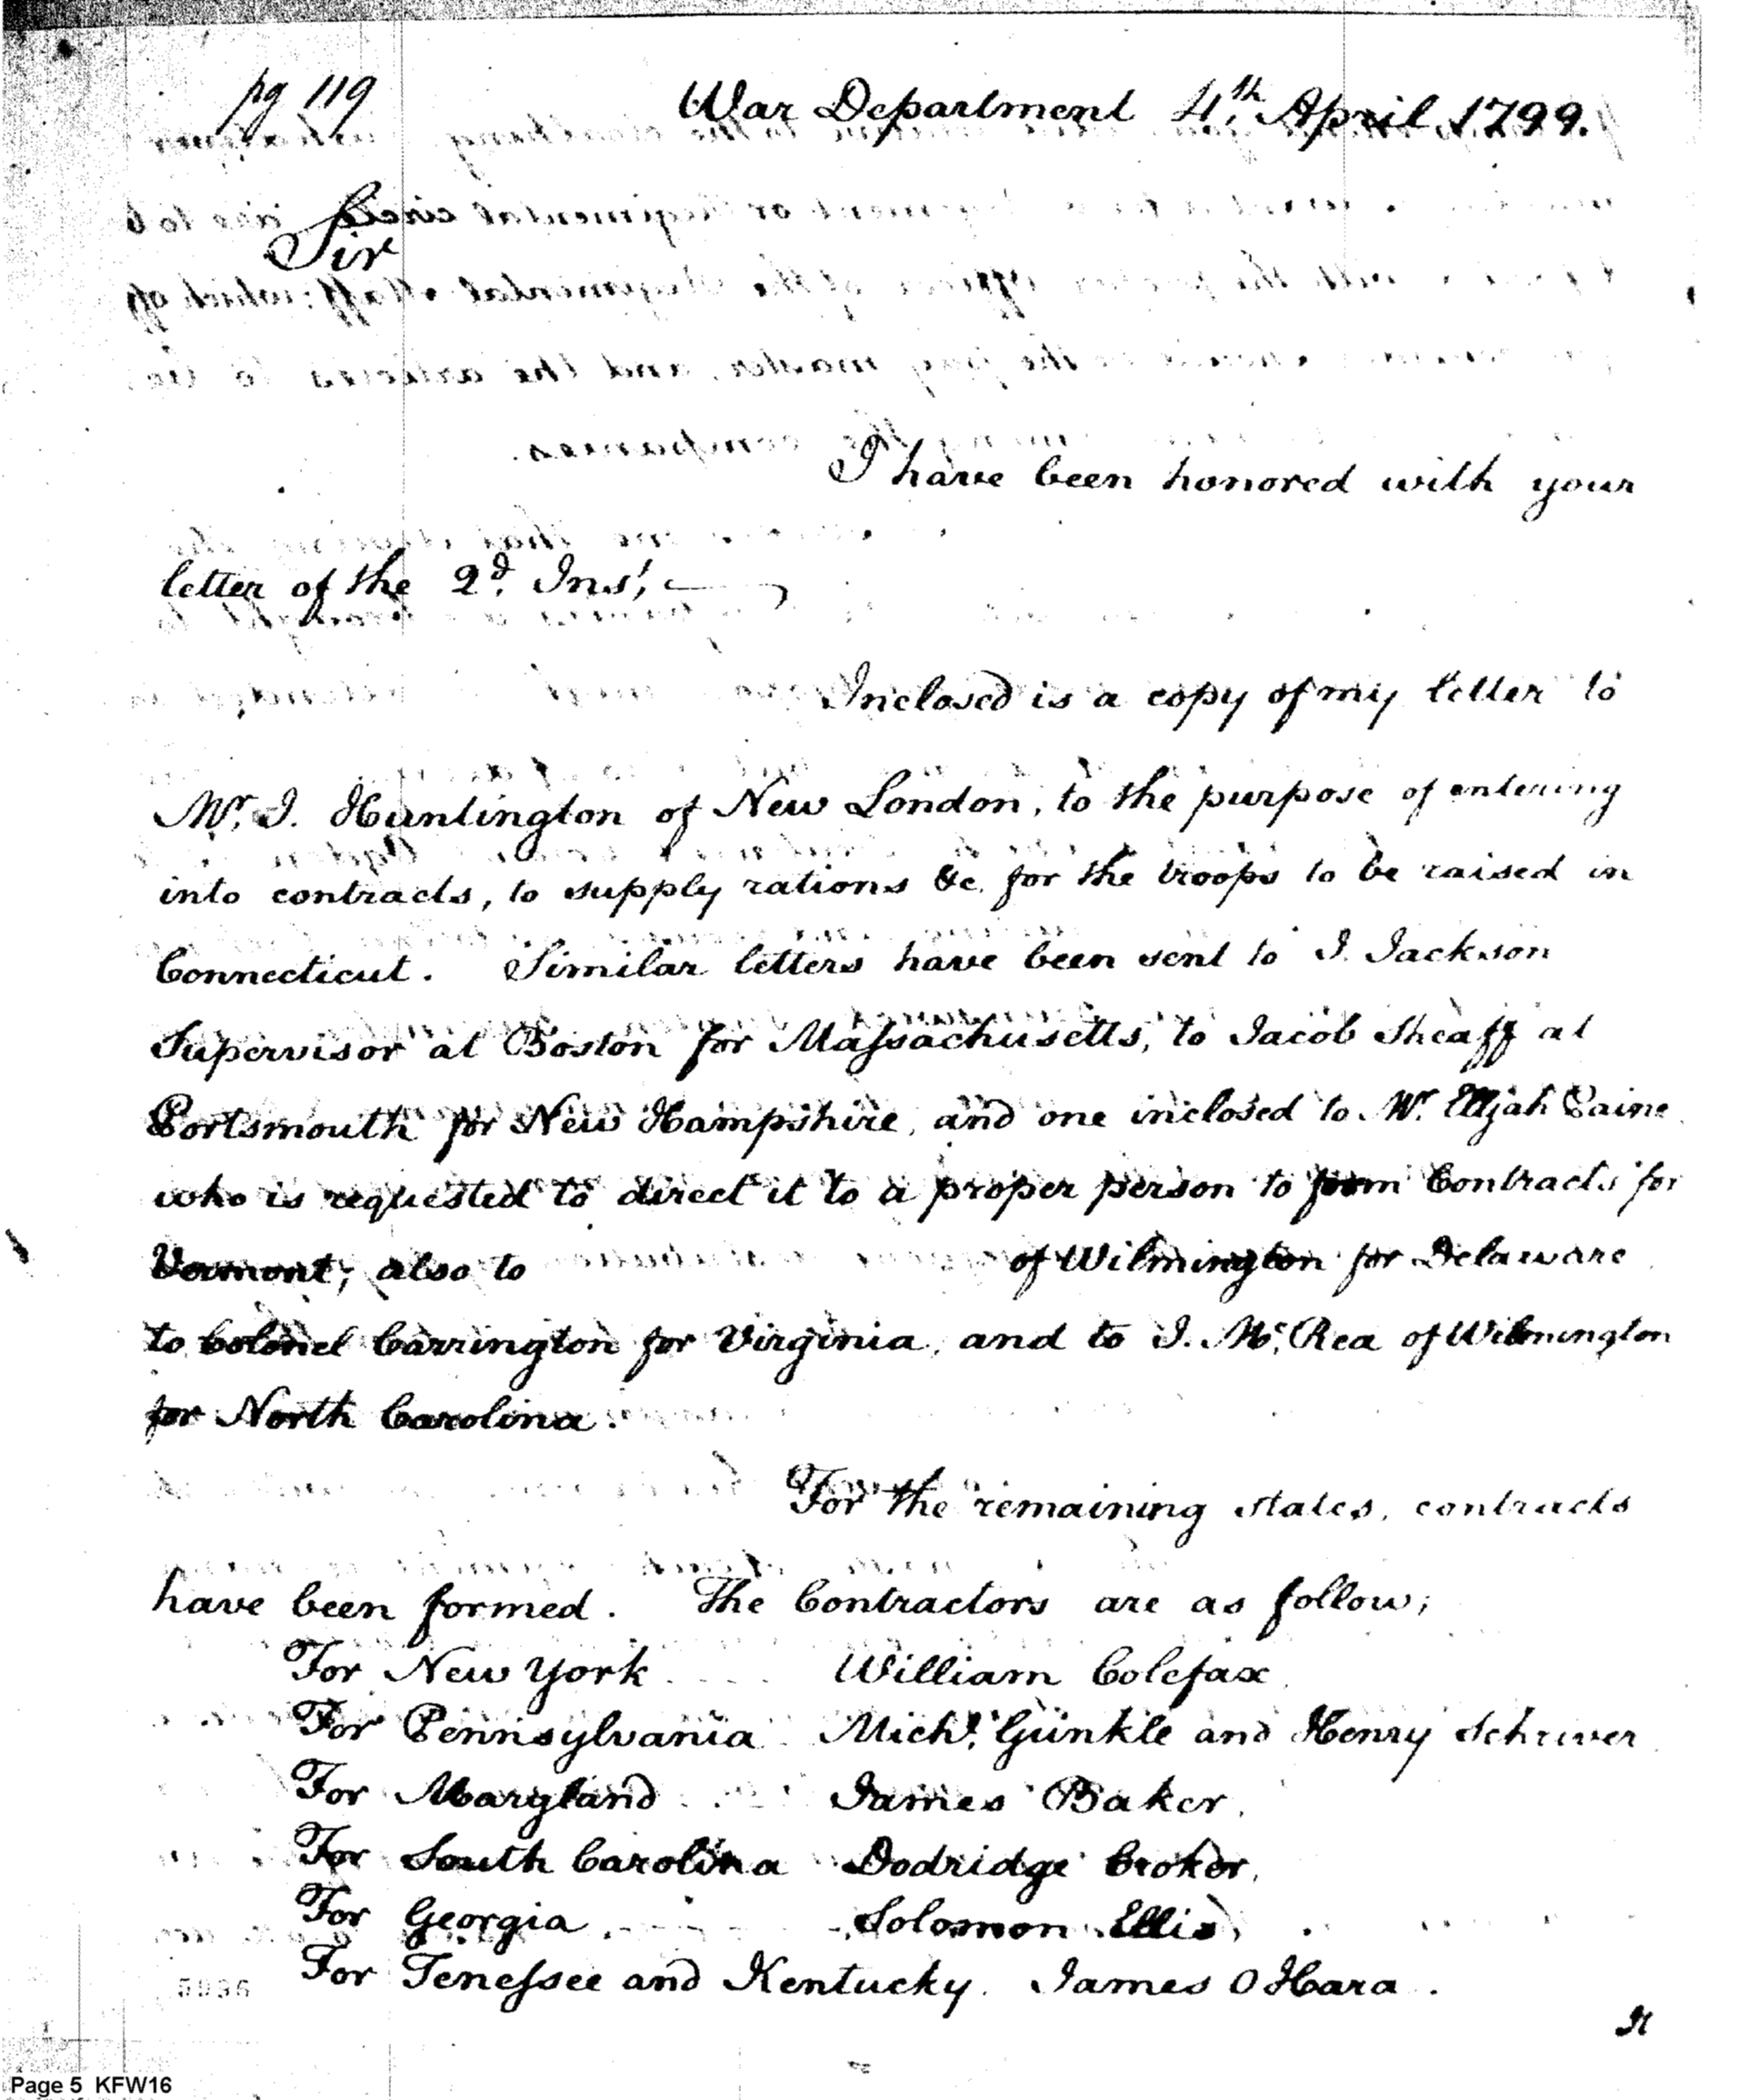 pg 119
War Department 4th April 1799.
Sir
I have been honored with your
letter of the 2d. Inst,
Inclosed is a copy of my letter to
Mr. J. Huntington of New London, to the purpose of entering
into contracts, to supply rations &c. for the troops to be raised in
Connecticut. Similar letters have been sent to J. Jackson
Supervisor at Boston for Massachusetts, to Jacob Sheaff at
Portsmouth for New Hampshire, and one inclosed to Mr. Elijah Paine
who is requested to direct it to a proper person to form Contracts for
Vermont; also to of Wilmington for Delaware
to Colonel Carrington for Virginia, and to J. Mc. Rea of Wilmington
for North Carolina.
For the remaining states, contracts
have been formed. The Contractors are as follow;
For New York William Colefax
For Pennsylvania Michl. Gunkle and Henry Schriver
For Maryland James Baker,
For South Carolina Dodridge Croker,
For Georgia Solomon Ellis,
For Tenessee and Kentucky. James O Hara.
It
Page 5 KFW16